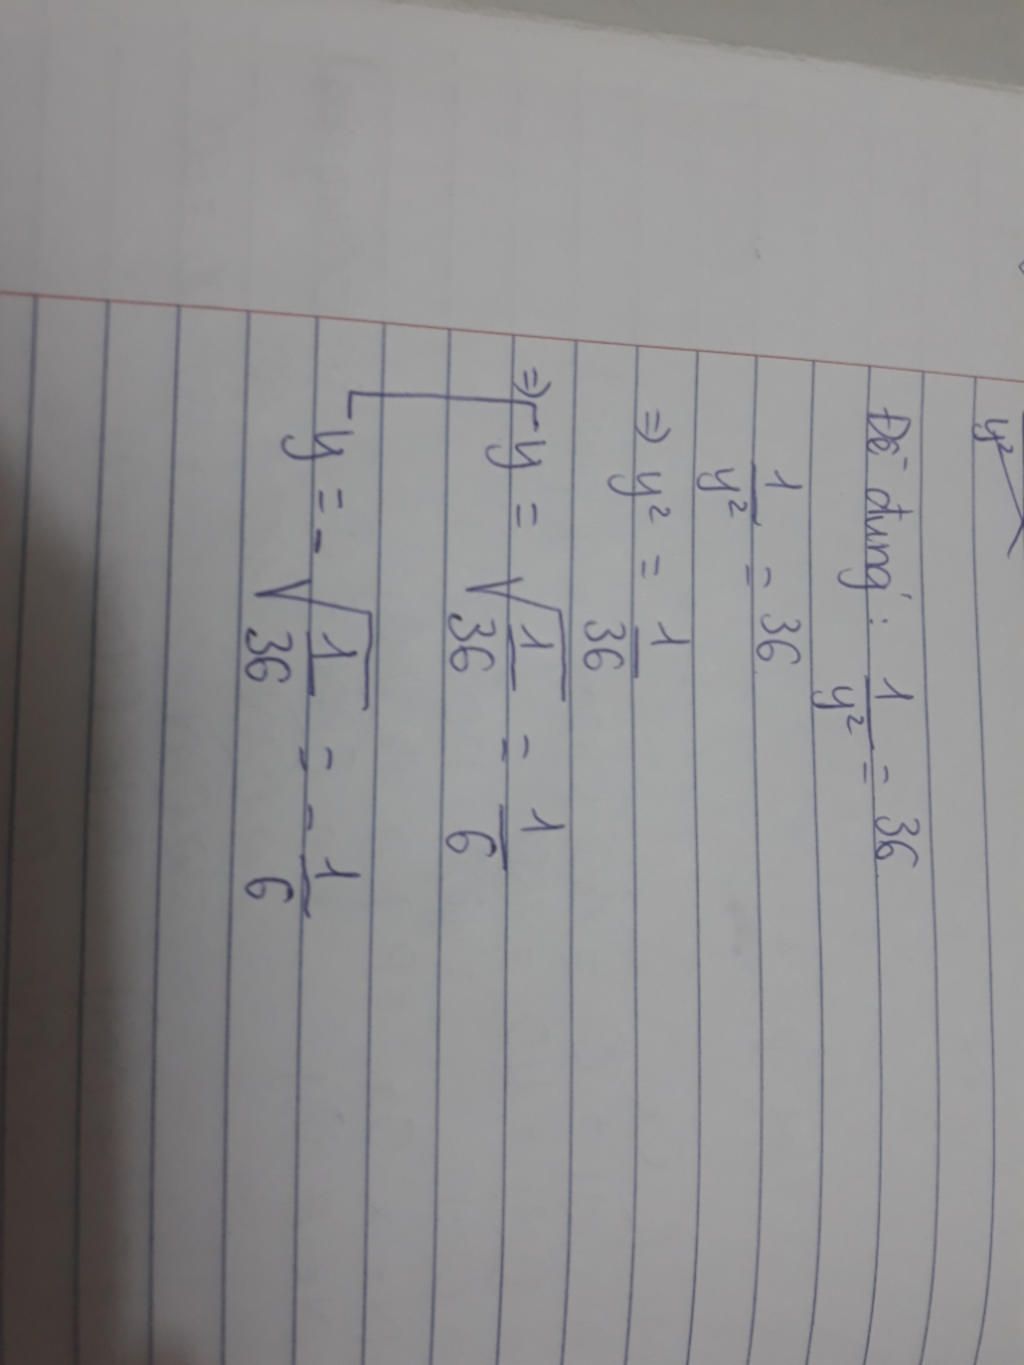 y²
Đề đúng: 1/y² = 36
1/y² = 36
=> y² = 1/36
=> y = √(1/36) = 1/6
y = - √(1/36) = - 1/6